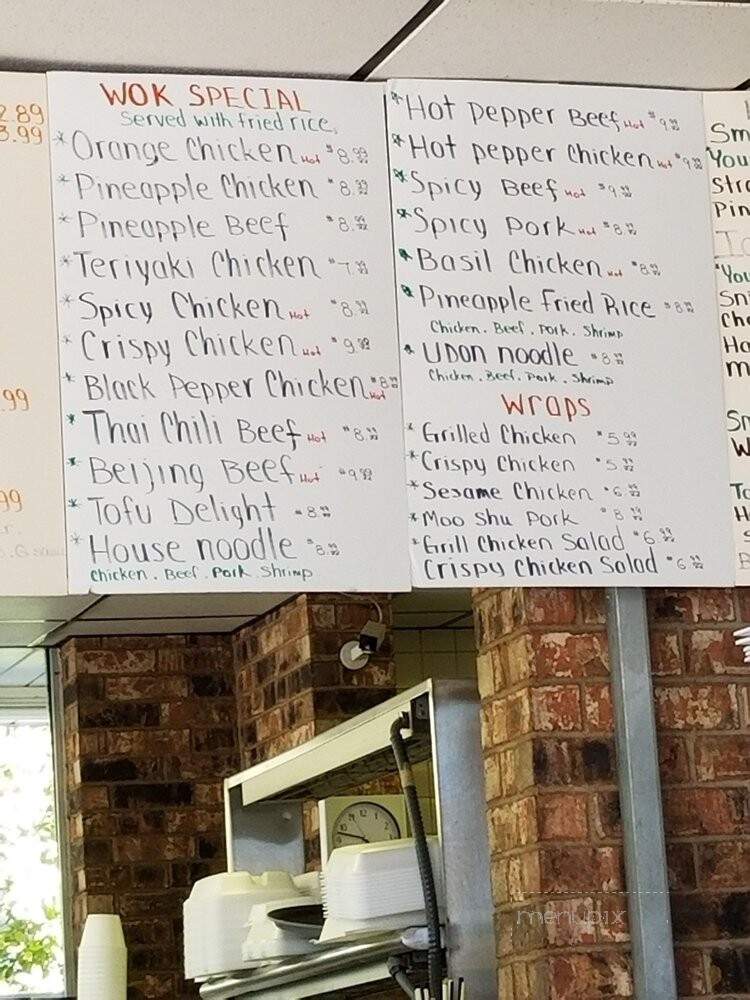 2.89
3.99
99
99
WOK SPECIAL
Served with fried rice.
*Orange Chicken Hot $8.99
*Pineapple Chicken $8.99
*Pineapple Beef $8.99
*Teriyaki Chicken $7.99
*Spicy Chicken Hot $8.99
*Crispy Chicken Hot $9.99
*Black Pepper Chicken Hot $8.99
*Thai Chili Beef Hot $8.99
*Beijing Beef Hot $9.99
*Tofu Delight $8.99
*House noodle $8.99
Chicken. Beef. Pork. Shrimp
*Hot pepper Beef Hot $9.99
*Hot pepper Chicken Hot $9.99
*Spicy Beef Hot $9.99
*Spicy Pork Hot $8.99
*Basil Chicken Hot $8.99
*Pineapple Fried Rice $8.99
Chicken. Beef. Pork. Shrimp
*Udon noodle $8.99
Chicken. Beef. Pork. Shrimp
Wraps
*Grilled Chicken $5.99
*Crispy Chicken $5.99
*Sesame Chicken $6.99
*Moo Shu Pork $8.99
*Grill Chicken Salad $6.99
Crispy Chicken Salad $6.99
Sm
You
Stra
Pin
menupix